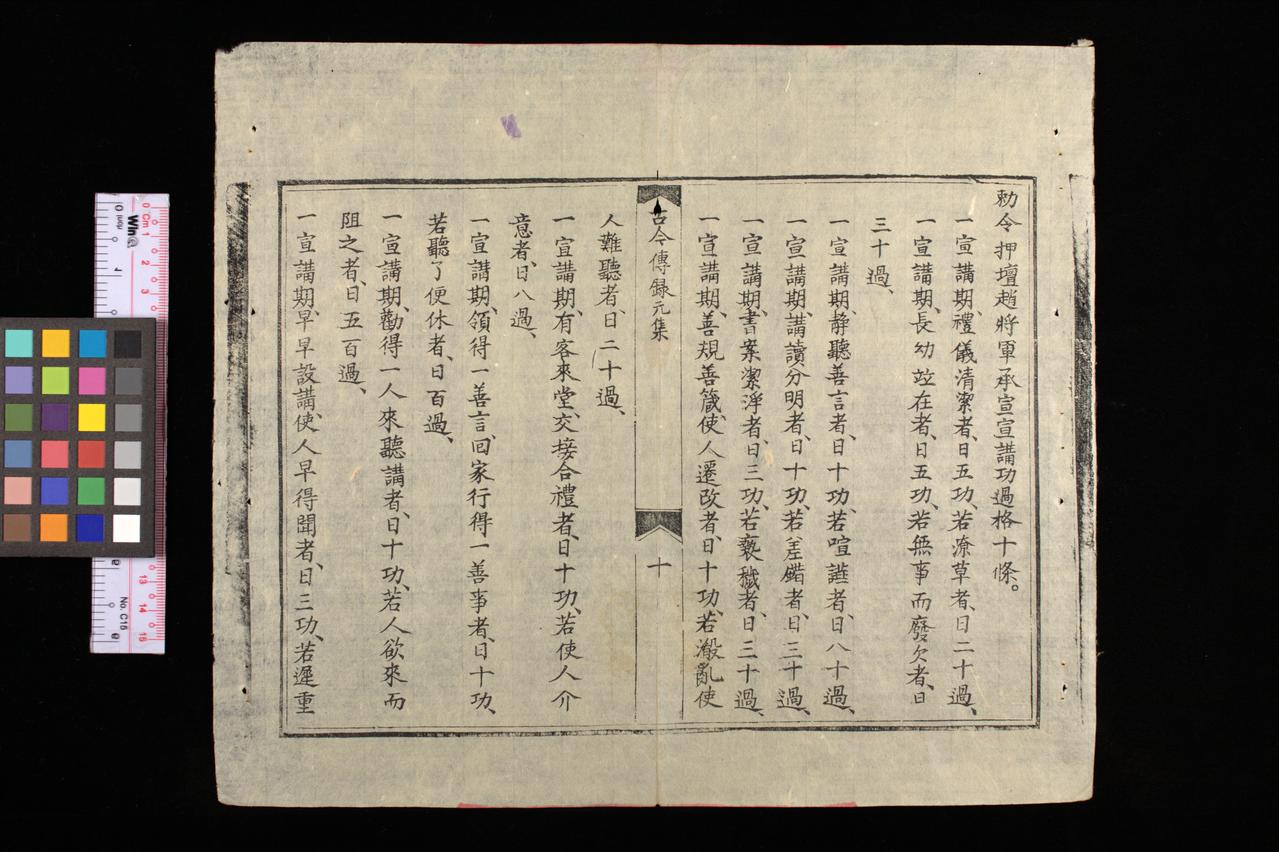 勅令押壇趙將軍承宣宣講功過格十條。
一宣講期、禮儀清潔者、日五功、若潦草者、日二十過、
一宣講期、長幼竝在者、日五功、若無事而廢欠者、日
三十過、
一宣講期、静聽善言者、日十功、若喧譁者、日八十過、
一宣講期、講讀分明者、日十功、若差錯者、日三十過、
一宣講期、書案潔淨者、日三功、若褻穢者、日三十過、
一宣講期、善規善箴、使人遷改者、日十功、若澱亂使
古今傳録元集
十
人難聽者、日二十過、
一宣講期、有客來堂、交接合禮者、日十功、若使人介
意者、日八過、
一宣講期、領得一善言、回家行得一善事者、日十功、
若聽了便休者、日百過、
一宣講期、勸得一人來聽講者、日十功、若人欲來而
阻之者、日五百過、
一宣講期、早早設講、使人早得聞者、日三功、若遲重
0 Cm 1
2
3
13
14
15
0 inch
1
No. C15